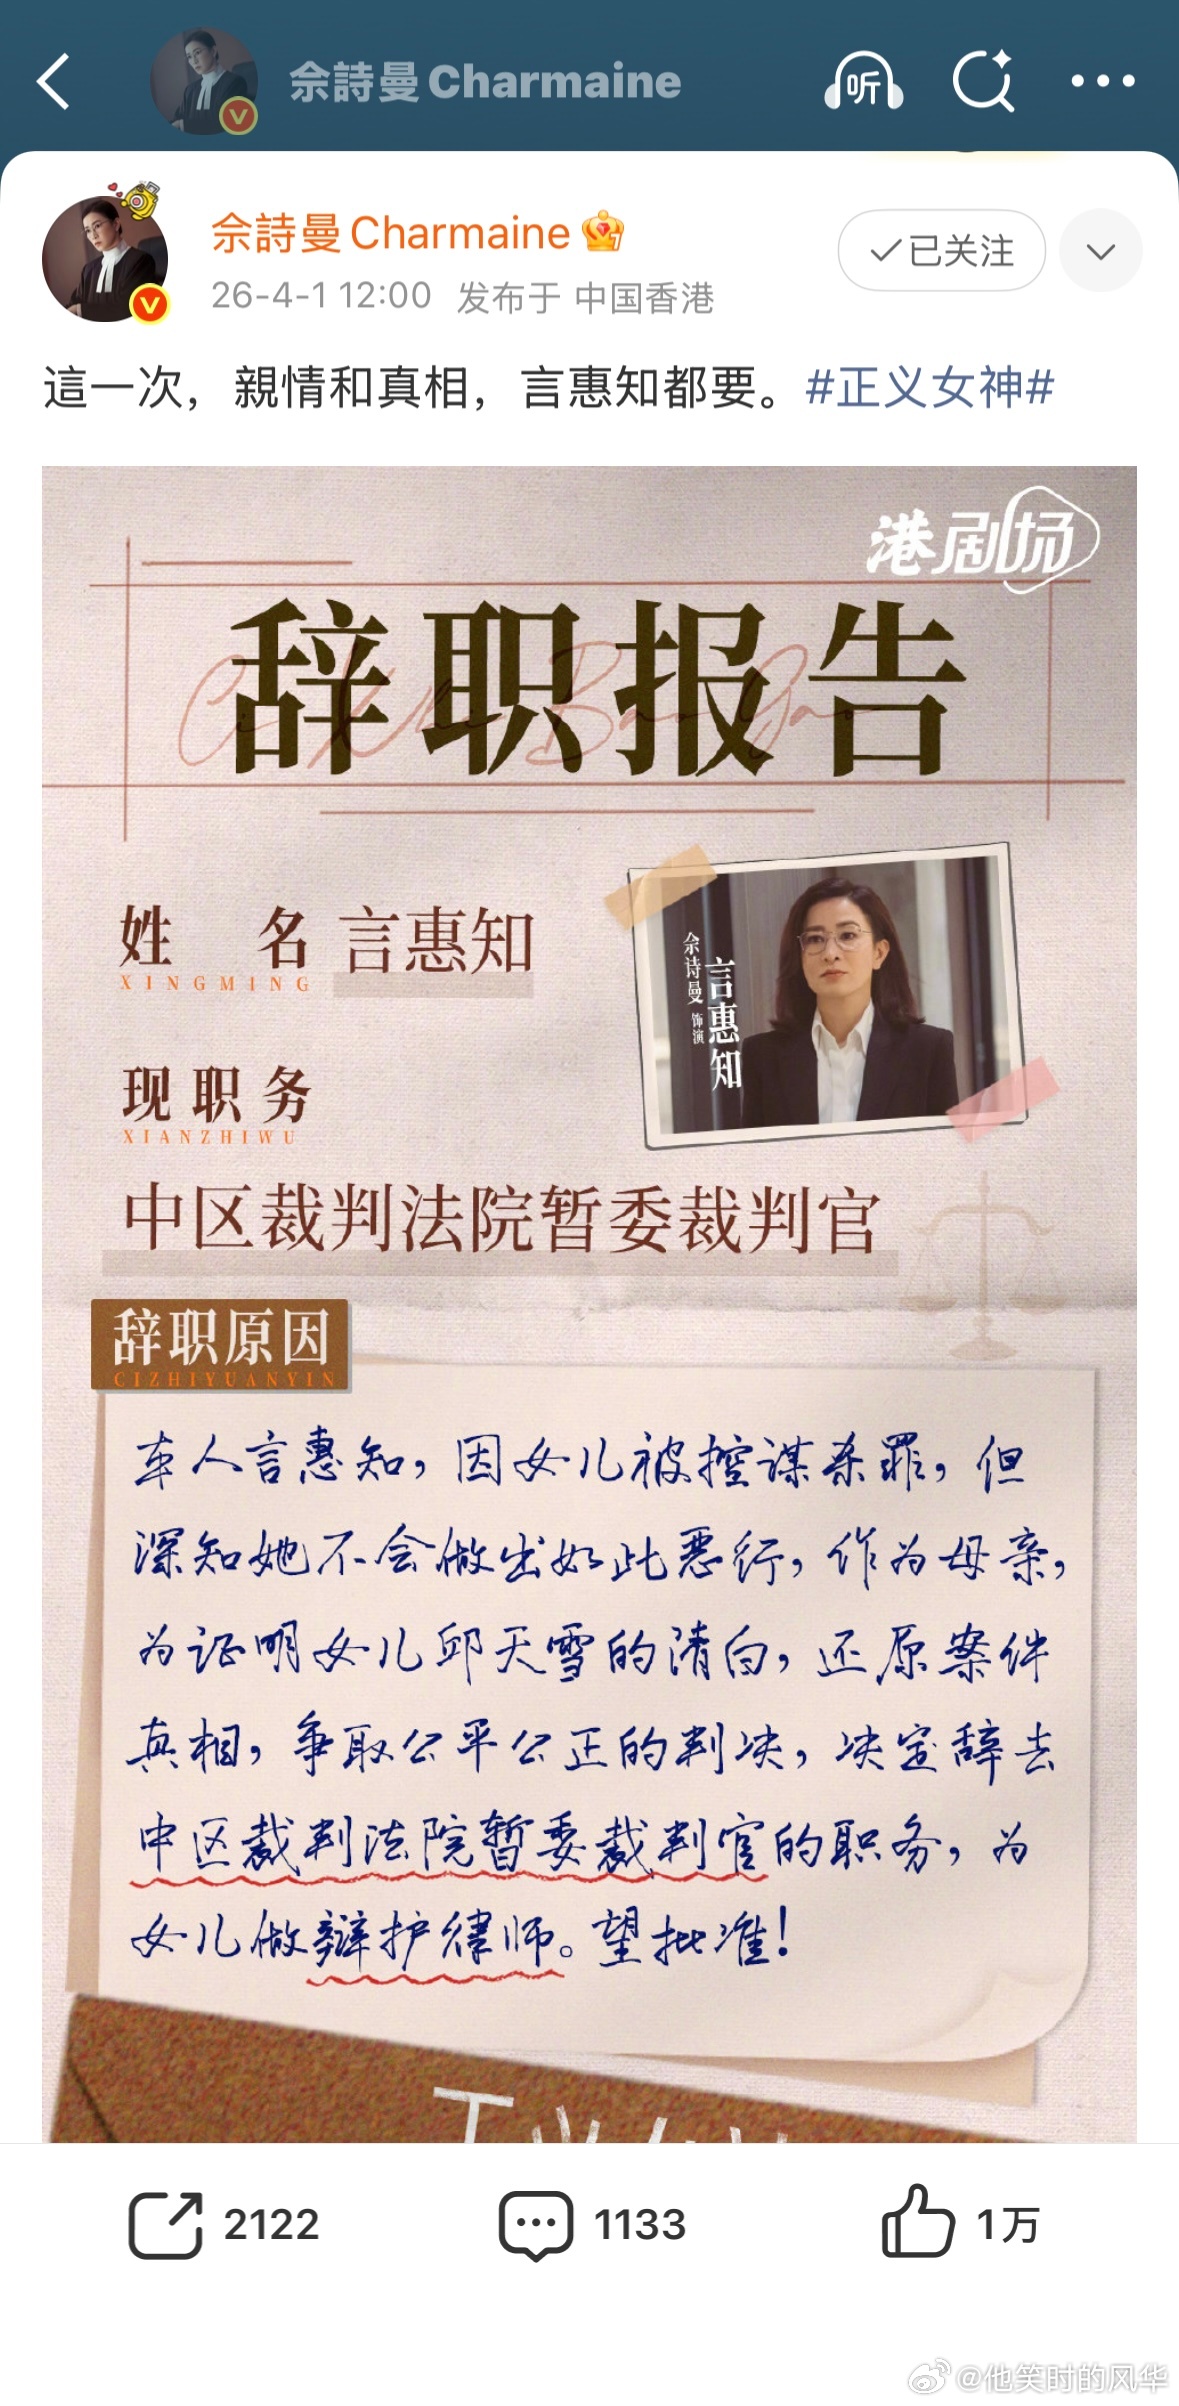 佘詩曼Charmaine
听
佘詩曼Charmaine
已关注
26-4-1 12:00 发布于 中国香港
這一次，親情和真相，言惠知都要。#正义女神#
港剧场
辞职报告
姓名 言惠知
XINGMING
佘诗曼 饰演
言惠知
现职务
XIANZHIWU
中区裁判法院暂委裁判官
辞职原因
CIZHIYUANYIN
本人言惠知，因女儿被控谋杀罪，但
深知她不会做出如此恶行，作为母亲，
为证明女儿邱天雪的清白，还原案件
真相，争取公平公正的判决，决定辞去
中区裁判法院暂委裁判官的职务，为
女儿做辩护律师。望批准！
2122
1133
1万
@他笑时的风华